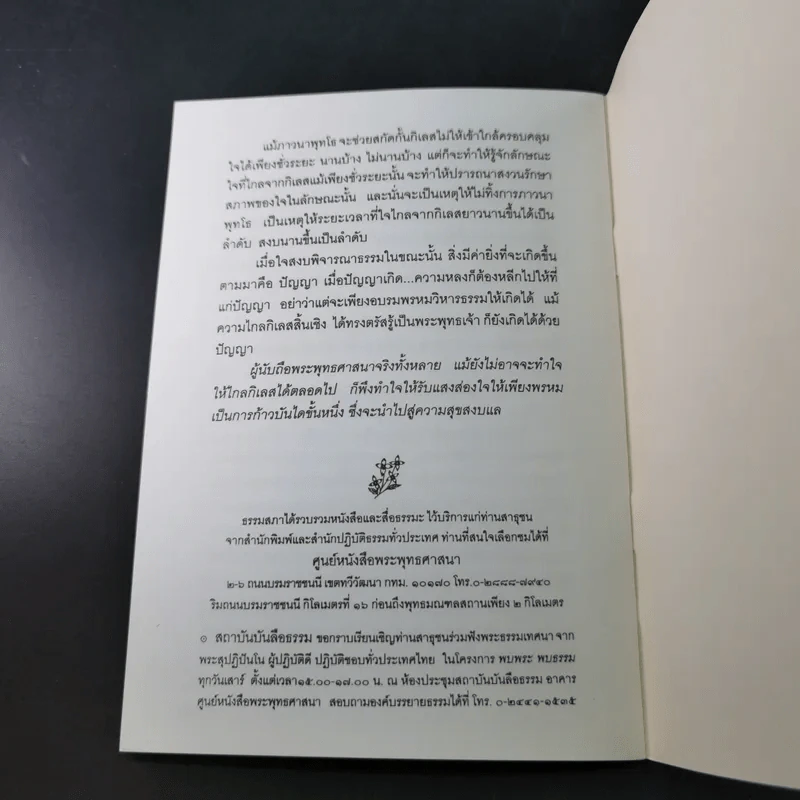 แม้ภาวนาพุทโธ จะช่วยสกัดกั้นกิเลสไม่ให้เข้าใกล้ครอบคลุม
ใจได้เพียงชั่วระยะ นานบ้าง ไม่นานบ้าง แต่ก็จะทำให้รู้จักลักษณะ
ใจที่ไกลจากกิเลสแม้เพียงชั่วระยะนั้น จะทำให้ปรารถนาสงวนรักษา
สภาพของใจในลักษณะนั้น และนั่นจะเป็นเหตุให้ไม่ทิ้งการภาวนา
พุทโธ เป็นเหตุให้ระยะเวลาที่ใจไกลจากกิเลสยาวนานขึ้นได้เป็น
ลำดับ สงบนานขึ้นเป็นลำดับ
เมื่อใจสงบพิจารณาธรรมในขณะนั้น สิ่งมีค่ายิ่งที่จะเกิดขึ้น
ตามมาคือ ปัญญา เมื่อปัญญาเกิด...ความหลงก็ต้องหลีกไปให้ที่
แก่ปัญญา อย่าว่าแต่จะเพียงอบรมพรหมวิหารธรรมให้เกิดได้ แม้
ความไกลกิเลสสิ้นเชิง ได้ทรงตรัสรู้เป็นพระพุทธเจ้า ก็ยังเกิดได้ด้วย
ปัญญา
ผู้นับถือพระพุทธศาสนาจริงทั้งหลาย แม้ยังไม่อาจจะทำใจ
ให้ไกลกิเลสได้ตลอดไป ก็พึงทำใจให้รับแสงส่องใจให้เพียงพรหม
เป็นการก้าวบันไดขั้นหนึ่ง ซึ่งจะนำไปสู่ความสุขสงบแล
ธรรมสภาได้รวบรวมหนังสือและสื่อธรรมะ ไว้บริการแก่ท่านสาธุชน
จากสำนักพิมพ์และสำนักปฏิบัติธรรมทั่วประเทศ ท่านที่สนใจเลือกชมได้ที่
ศูนย์หนังสือพระพุทธศาสนา
๒-๖ ถนนบรมราชชนนี เขตทวีวัฒนา กทม. ๑๐๑๗๐ โทร.๐-๒๘๘๘-๗๙๔๐
ริมถนนบรมราชชนนี กิโลเมตรที่ ๑๖ ก่อนถึงพุทธมณฑลสถานเพียง ๒ กิโลเมตร
๏ สถาบันบันลือธรรม ขอกราบเรียนเชิญท่านสาธุชนร่วมฟังพระธรรมเทศนา จาก
พระสุปฏิปันโน ผู้ปฏิบัติดี ปฏิบัติชอบทั่วประเทศไทย ในโครงการ พบพระ พบธรรม
ทุกวันเสาร์ ตั้งแต่เวลา๑๕.๐๐-๑๗.๐๐ น. ณ ห้องประชุมสถาบันบันลือธรรม อาคาร
ศูนย์หนังสือพระพุทธศาสนา สอบถามองค์บรรยายธรรมได้ที่ โทร. ๐-๒๔๔๑-๑๕๓๕